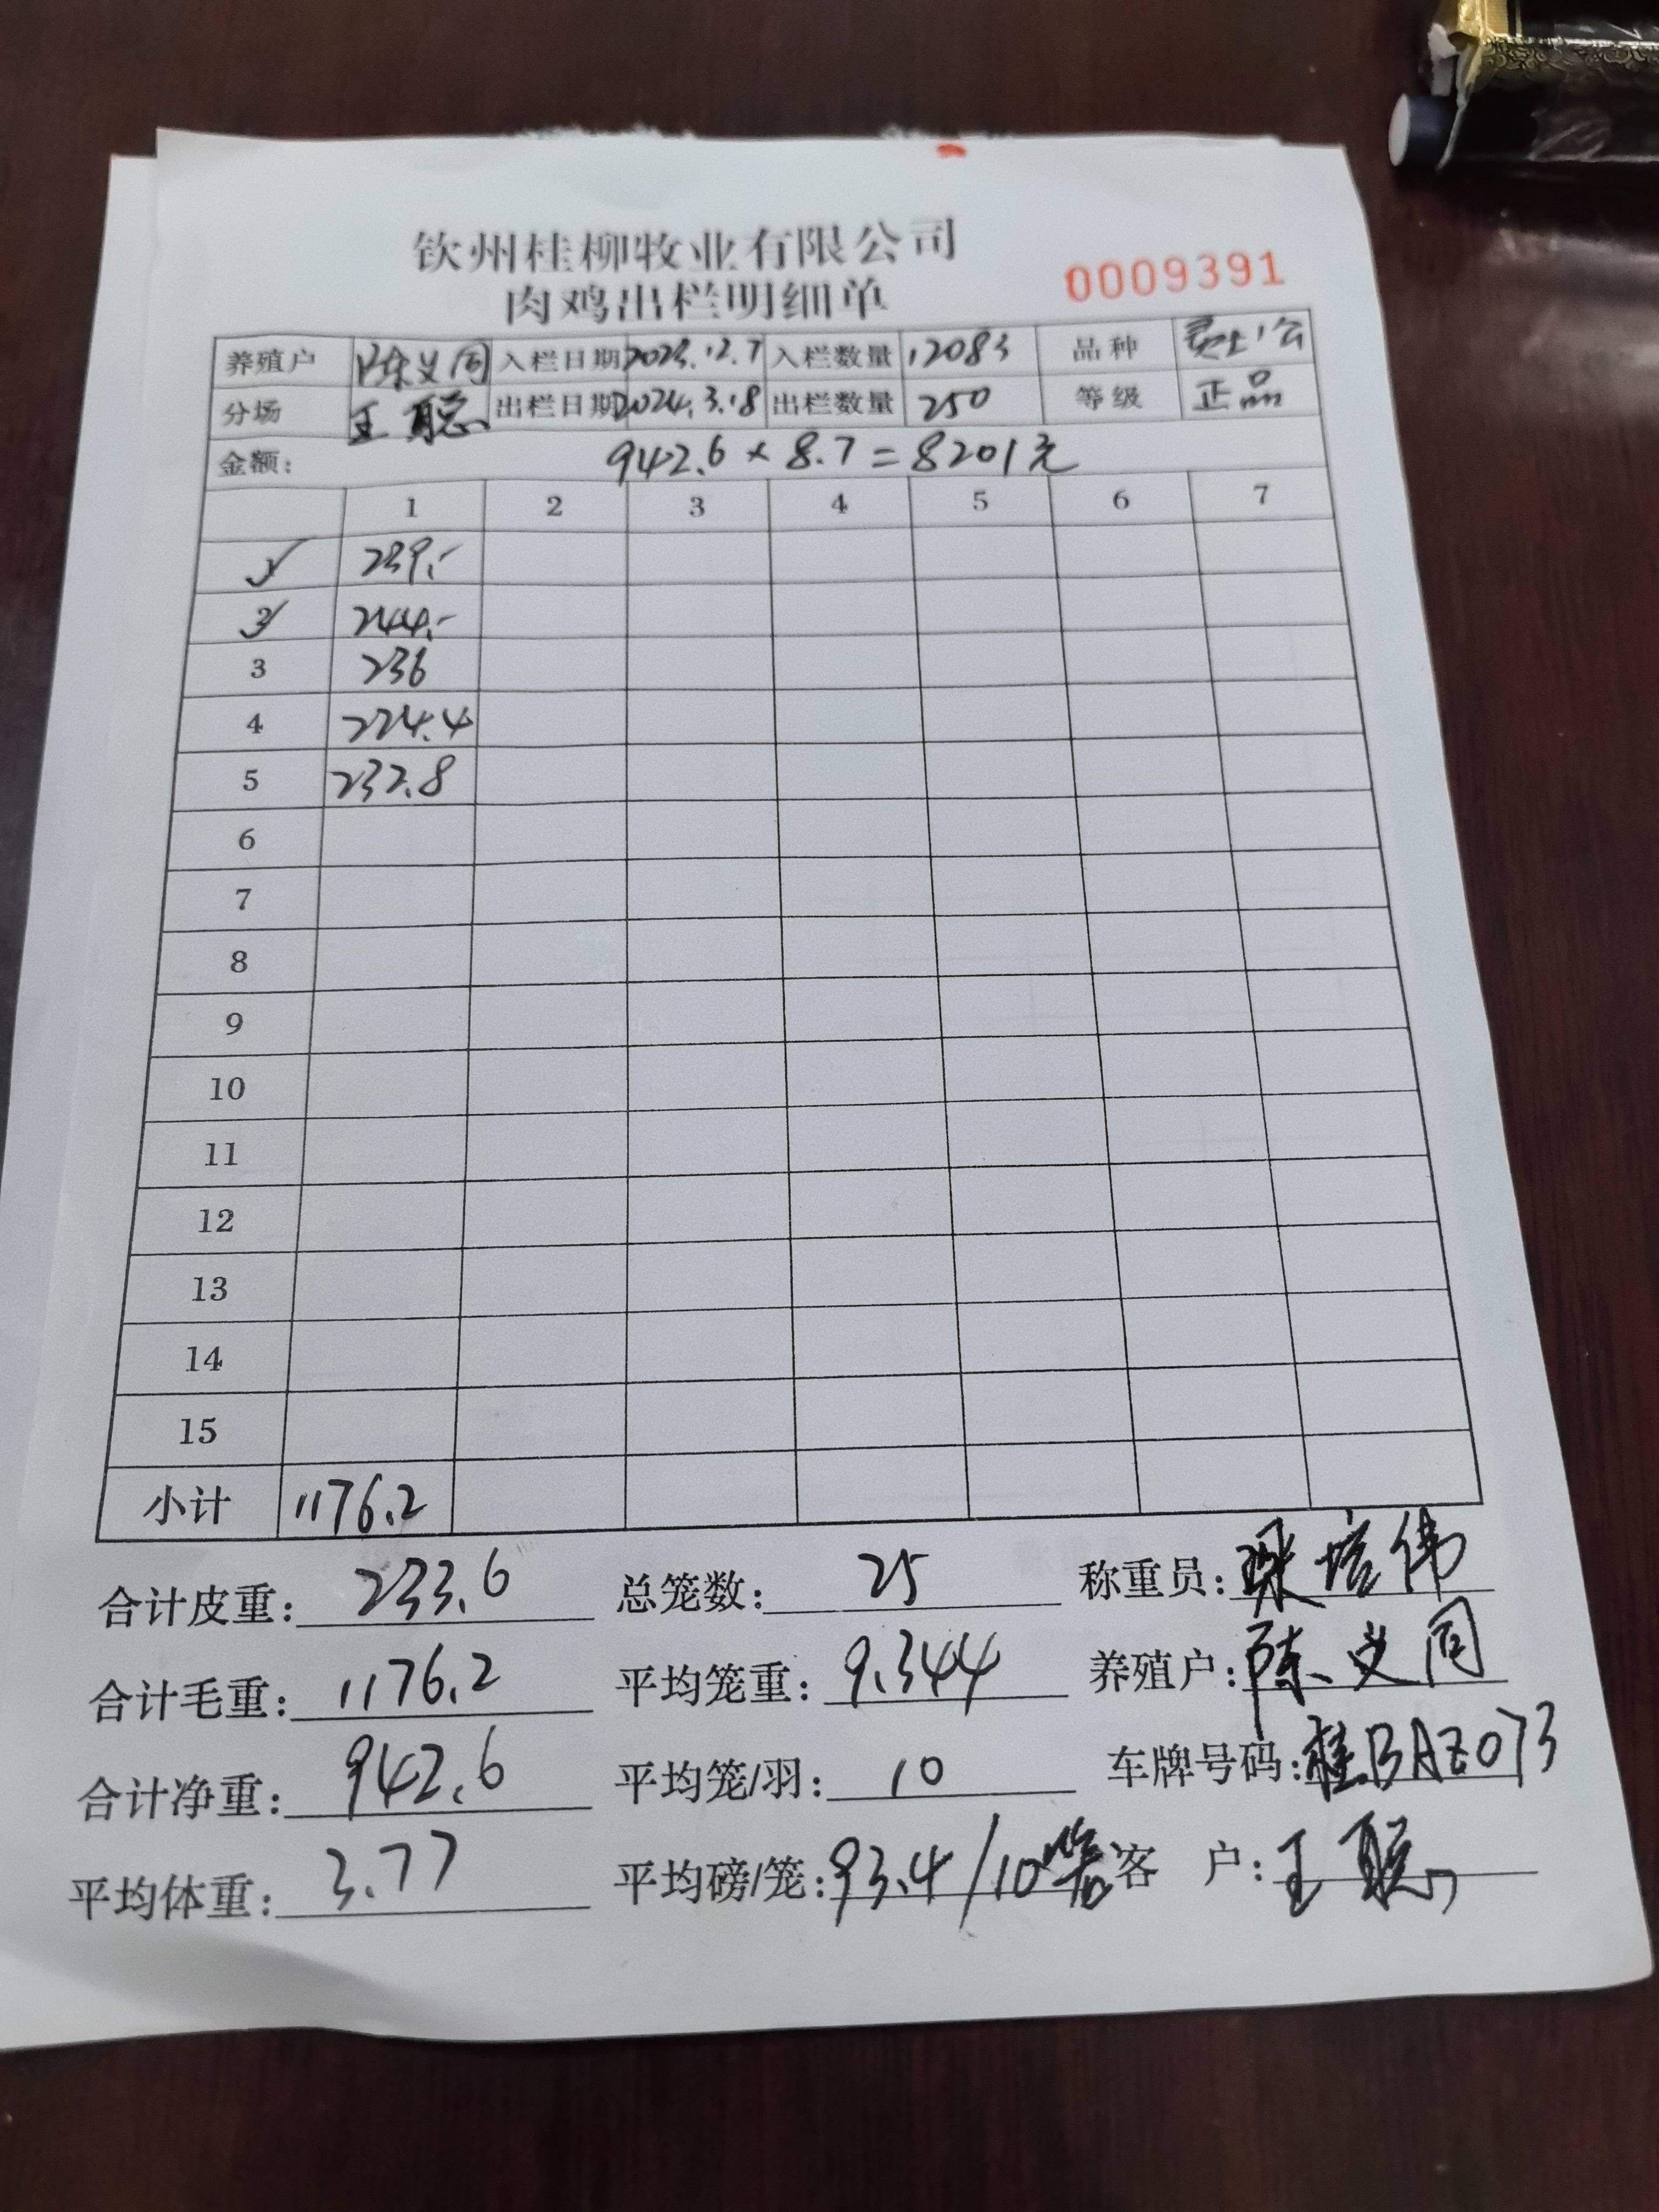 钦州桂柳牧业有限公司
肉鸡出栏明细单
0009391
养殖户 陈义同 入栏日期 2023.12.7 入栏数量 12083 品种
分场 王聪 出栏日期 2024.3.18 出栏数量 250 等级 正品
金额: 942.6 × 8.7 = 8201元
1 2 3 4 5 6 7
1 239.-
2 244.-
3 236
4 224.4
5 232.8
6
7
8
9
10
11
12
13
14
15
小计 1176.2
合计皮重: 233.6 总笼数: 25 称重员: 培伟
合计毛重: 1176.2 平均笼重: 9.344 养殖户: 陈义同
合计净重: 942.6 平均笼/羽: 10 车牌号码: 桂BAZ073
平均体重: 3.77 平均磅/笼: 93.4/10 客 户: 王聪